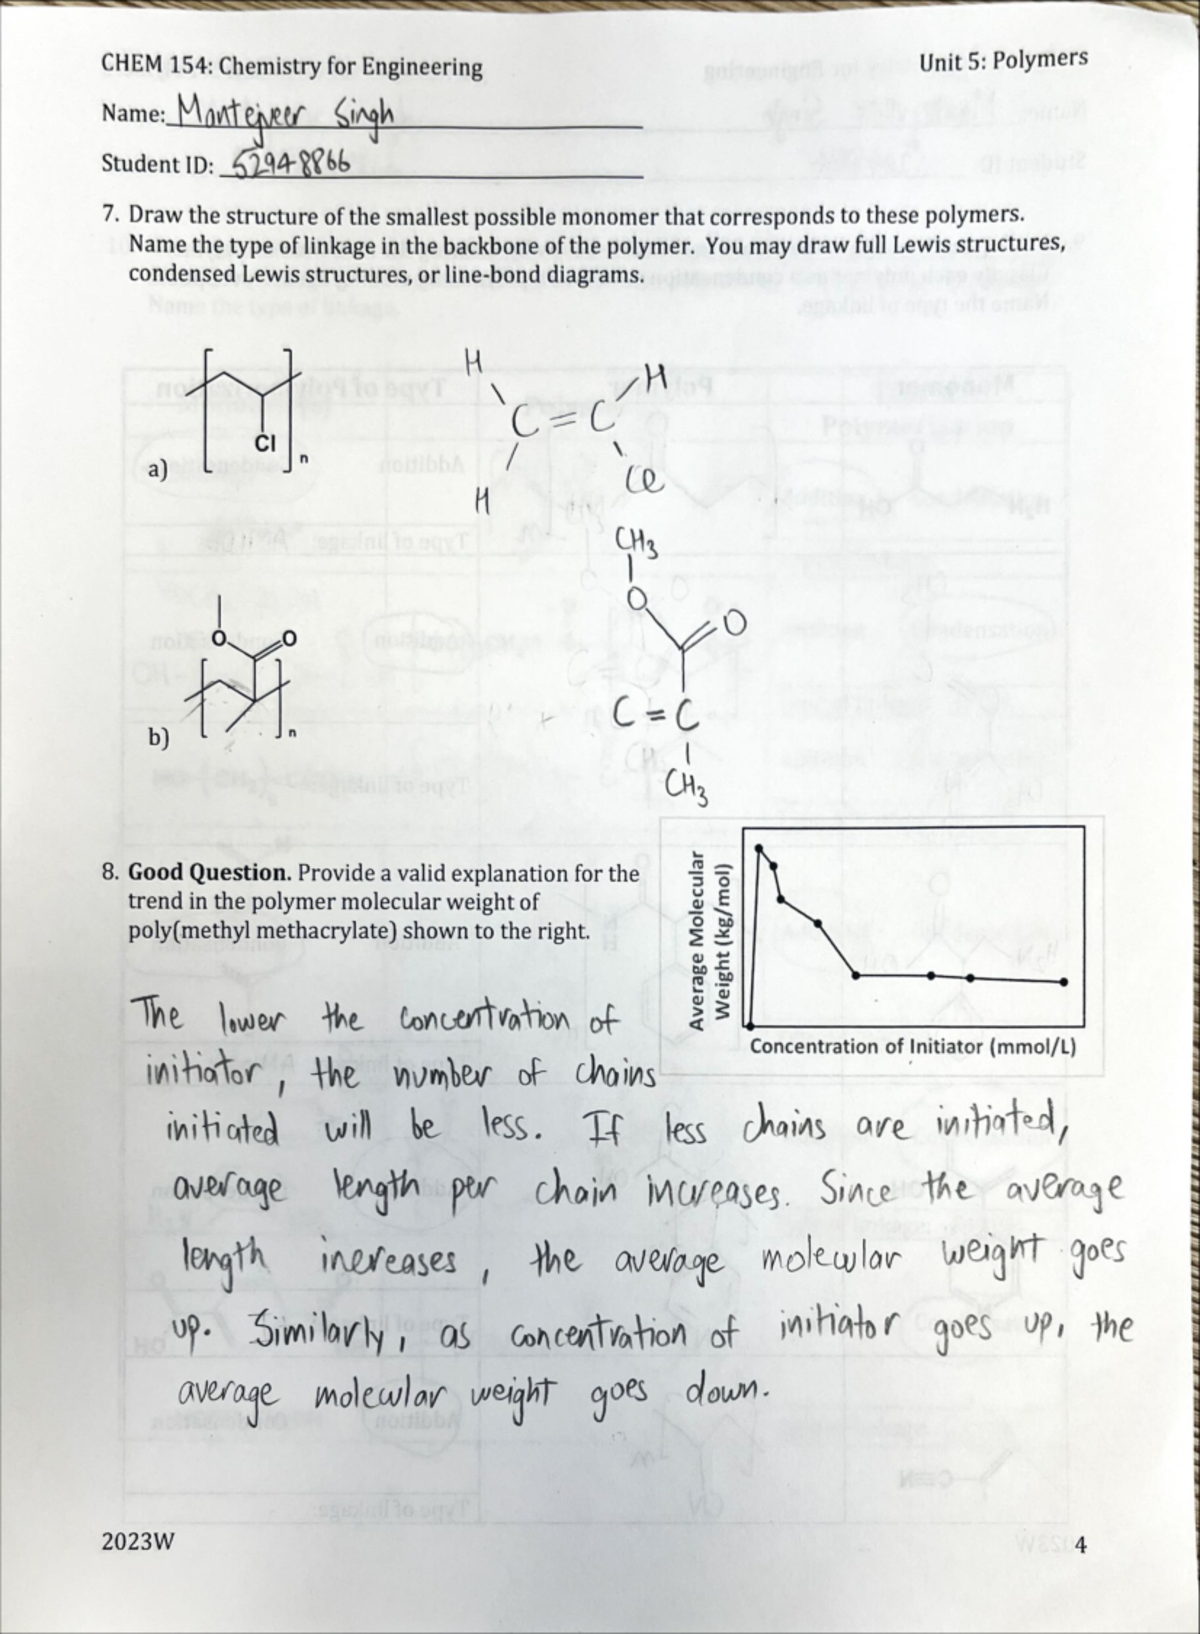 CHEM 154: Chemistry for Engineering
Unit 5: Polymers
Name: Mantejveer Singh
Student ID: 52948866
7. Draw the structure of the smallest possible monomer that corresponds to these polymers.
Name the type of linkage in the backbone of the polymer. You may draw full Lewis structures,
condensed Lewis structures, or line-bond diagrams.
a)
Cl
n
H
H
C = C
H
Cl
b)
O
O
n
CH3
O
O
C = C
CH3
8. Good Question. Provide a valid explanation for the
trend in the polymer molecular weight of
poly(methyl methacrylate) shown to the right.
Average Molecular
Weight (kg/mol)
Concentration of Initiator (mmol/L)
The lower the concentration of
initiator, the number of chains
initiated will be less. If less chains are initiated,
average length per chain increases. Since the average
length increases, the average molecular weight goes
up. Similarly, as concentration of initiator goes up, the
average molecular weight goes down.
2023W
4